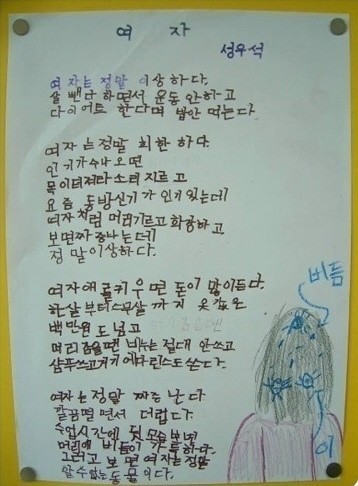 여 자
성우석
여자는 정말 이상하다.
살 뺀다 하면서 운동 안하고
다이어트 한다며 밥안 먹는다.
여자는 정말 희한 하다.
인기가수나 오면
목이터져라 소리 지르고
요즘 동방신기가 인기 있는데
여자처럼 머리기르고 화장하고
보면짜증나는데
정말 이상하다.
여자애를 키우면 돈이 많이든다.
한살부터 스무살 까지 옷값은
백만원도 넘고
머리감을땐 비누는 절대 안쓰고
샴푸쓰고 거기에다 린스도 쓴다.
여자는 정말 짜증 난다
깔끔떨면서 더럽다.
수업시간에 뒷모습 보면
머리에 비듬이 가득하다.
그러고 보면 여자는 정말
알수없는 동물이다.
비듬
이